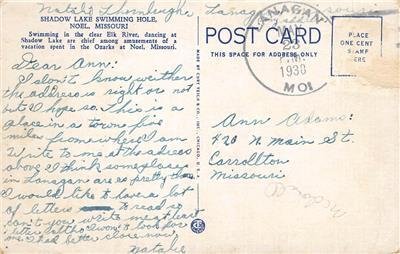 Natalie Thornburgh
Lanagan
SHADOW LAKE SWIMMING HOLE,
NOEL, MISSOURI
Swimming in the clear Elk River, dancing at
Shadow Lake are chief among amusements of a
vacation spent in the Ozarks at Noel, Missouri.
Dear Ann:
I don't know weither
the address is right or not
but I hope so. This is a
place in a town five
miles from where I am
Write to me at the adress
above I think some places
in Lanagan are so pretty
I would like to have a lot
of letters to read so
can't you write me at least
letter altho I won't look for
one. I had better close now,
Natalie
MADE BY CURT TEICH & CO., INC. CHICAGO, U.S.A.
POST CARD
THIS SPACE FOR ADDRESS ONLY
LANAGAN
23
1938
MO
PLACE
ONE CENT
STAMP
HERE
Ann Adams:
420 N. Main St.
Carrollton
Missouri